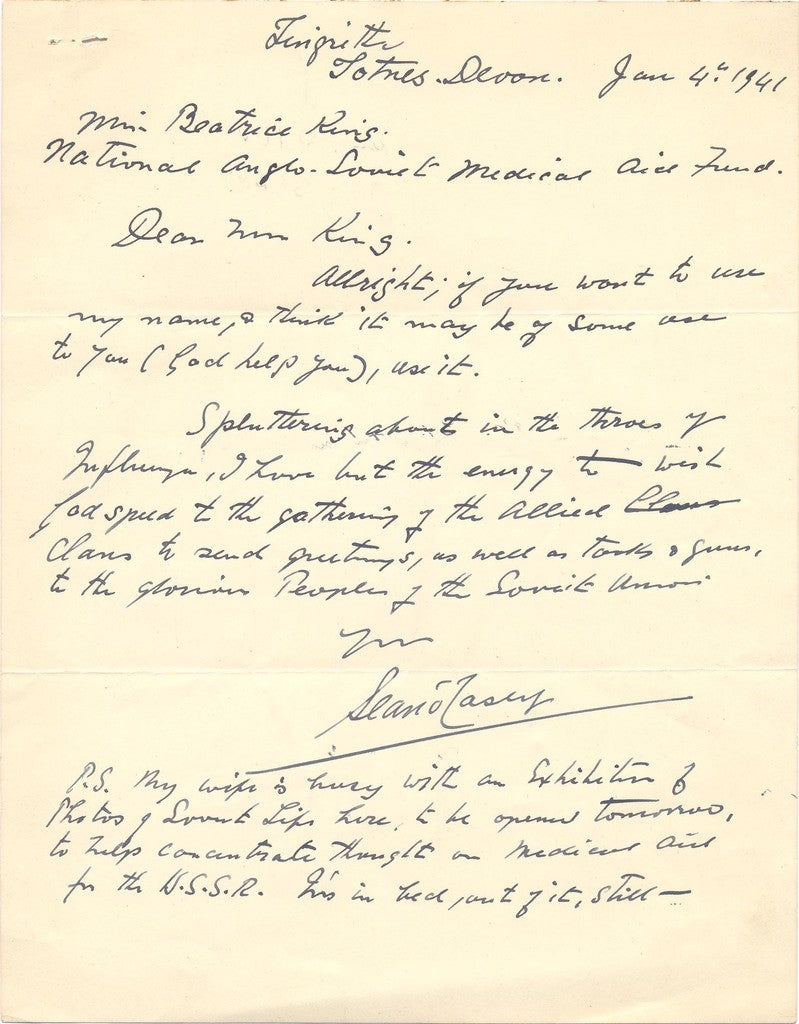 Tingrith
Totnes. Devon. Jan 4th 1941
Mrs. Beatrice King.
National Anglo-Soviet Medical Aid Fund.
Dear Mrs King.
Allright; if you want to use
my name, & think it may be of some use
to you (God help you), use it.
Spluttering about in the throes of
Influenza, I have but the energy to wish
God speed to the gathering of the Allied Clans
Clans to send greetings, as well as tanks & guns,
to the glorious Peoples of the Soviet Union
Yrs
Sean O'Casey
P.S. My wife is busy with an Exhibition of
Photos of Soviet Life here, to be opened tomorrow,
to help concentrate thought on Medical Aid
for the U.S.S.R. I'm in bed, out of it, still —